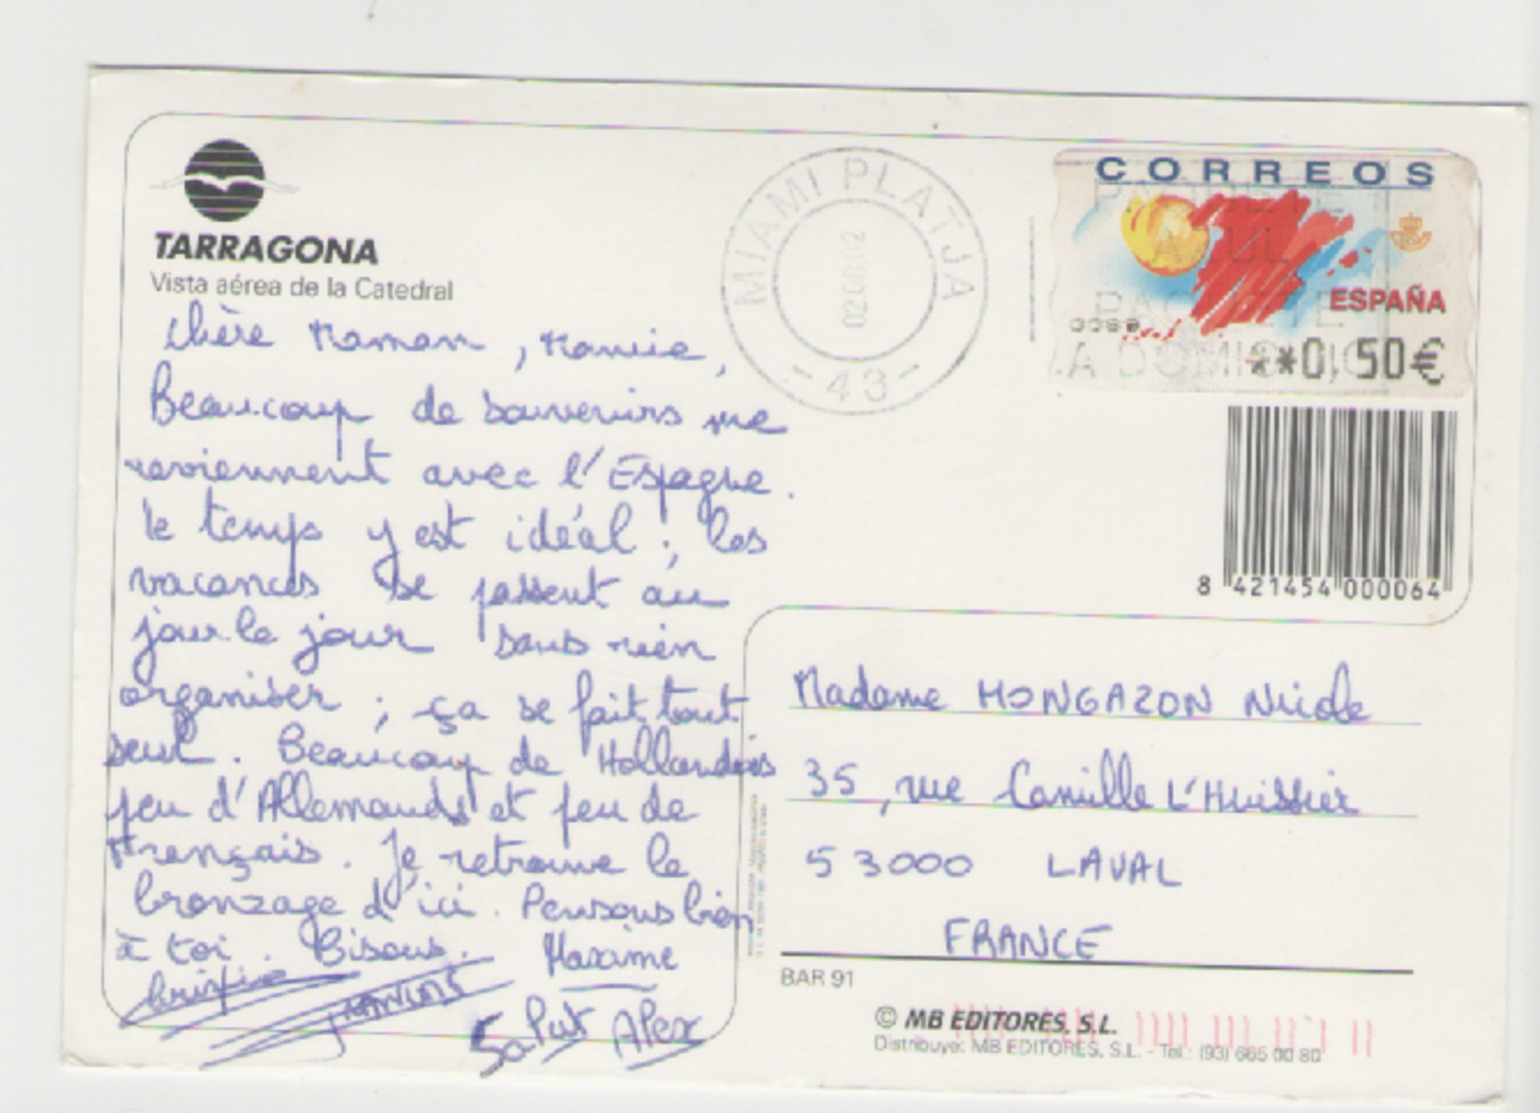 TARRAGONA
Vista aérea de la Catedral
Chère Maman, Mamie,
Beaucoup de souvenirs me
reviennent avec l'Espagne.
le temps y est idéal ; les
vacances se passent au
jour le jour sans rien
organiser ; ça se fait tout
seul. Beaucoup de Hollandais
peu d'Allemands et peu de
Français. Je retrouve le
bronzage d'ici. Pensons bien
à toi. Bisous. Maxime
Salut Alex
MIAMI PLATJA
02 08 02
- 43 -
CORREOS
PAQUETE
AZUL
ESPAÑA
A DOMICILIO
**0,50€
8 421454 000064
Madame MONGAZON Nicole
35, rue Camille L'Huissier
53000 LAVAL
FRANCE
BAR 91
© MB EDITORES, S.L.
Distribuye: MB EDITORES, S.L. - Tel.: (93) 665 00 80